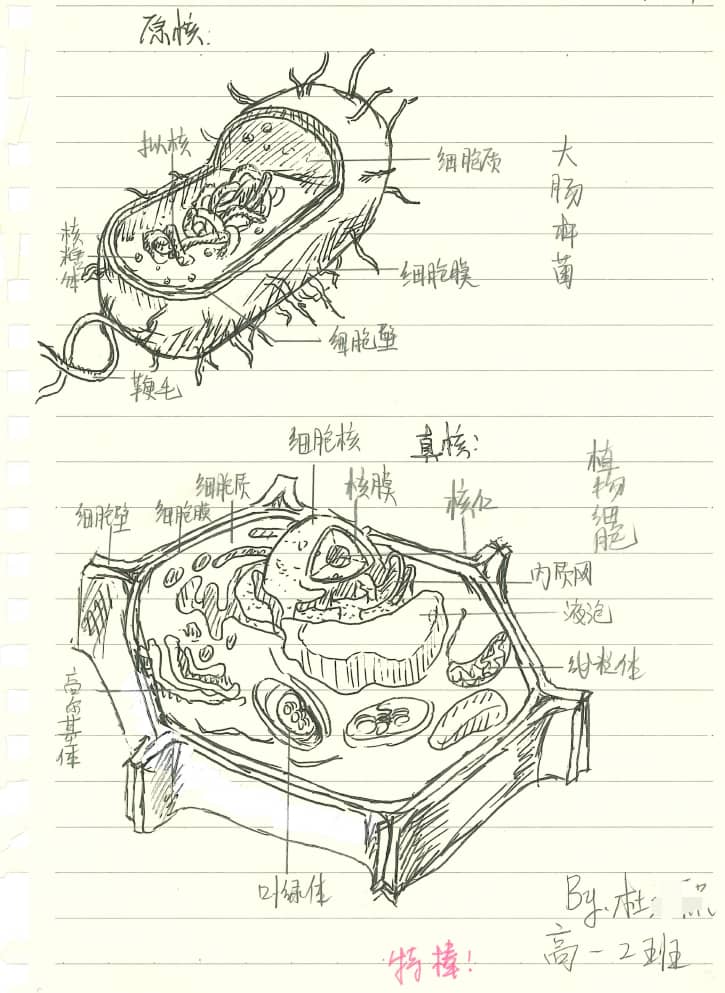 原核:
拟核
细胞质
大肠杆菌
核糖体
细胞膜
细胞壁
鞭毛
细胞核
真核:
植物细胞
细胞质
核膜
核仁
细胞壁
细胞膜
内质网
液泡
线粒体
高尔基体
叶绿体
By.杜
高一2班
特棒!